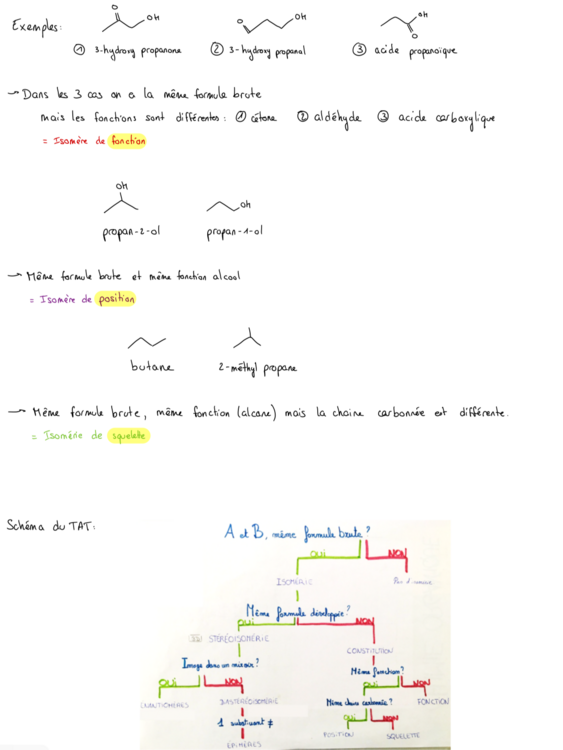 Exemples:
O
OH
O
OH
OH
O
① 3-hydroxy propanone
② 3-hydroxy propanal
③ acide propanoïque
→ Dans les 3 cas on a la même formule brute
mais les fonctions sont différentes : ① cétone ② aldéhyde ③ acide carboxylique
= Isomère de fonction
OH
OH
propan-2-ol
propan-1-ol
→ Même formule brute et même fonction alcool
= Isomère de position
butane
2-méthyl propane
→ Même formule brute, même fonction (alcane) mais la chaine carbonnée est différente.
= Isomérie de squelette
Schéma du TAT:
A et B, même formule brute ?
OUI
NON
ISOMÉRIE
Pas d'isomérie
Même formule développée ?
OUI
NON
STÉRÉOISOMÉRIE
CONSTITUTION
Image dans un miroir ?
Même fonction ?
OUI
NON
OUI
NON
ENANTIOMÈRES
DIASTÉRÉOISOMÉRIE
Même chaine carbonée ?
FONCTION
1 substituant ≠
OUI
NON
POSITION
SQUELETTE
ÉPIMÈRES